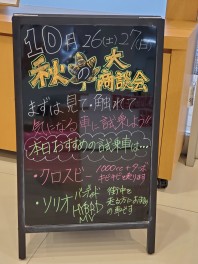 10月26(土)27(日)
秋の大商談会
まずは見て、触れて
気になる車に試乗しよう!!
本日おすすめの試乗車は…
・クロスビー 1000cc+ターボ
キビキビ走ります
・ソリオ バンディット
HYBRID
MV
街中を